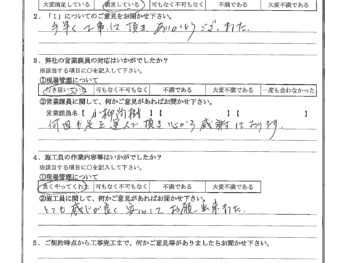 大変満足している 満足している 可もなく不可もなく 不満である 大変不満である
2．「1」についてのご意見をお聞かせ下さい。
手早く工事に頂きありがとうございました。
3．弊社の営業課員の対応はいかがでしたか？
※該当する項目に〇を記入して下さい。
①現場管理について
行き届いていた 可もなく不可もなく 不満である 大変不満である 一度も会わなかった
②営業課員に関して、何かご意見があればお聞かせ下さい。
営業課員名【小柳尚樹】【 】【 】
何回も足を運んで頂き心から感謝しております。
4．施工員の作業内容等はいかがでしたか？
※該当する項目に〇を記入して下さい。
①現場管理について
良くやってくれた 可もなく不可もなく 不満である 大変不満である
②施工員に関して、何かご意見があればお聞かせ下さい。
とても感じが良く安心してお願い出来ました。
5．ご契約時点から工事完工まで、何かご意見等がありましたらお聞かせ下さい。